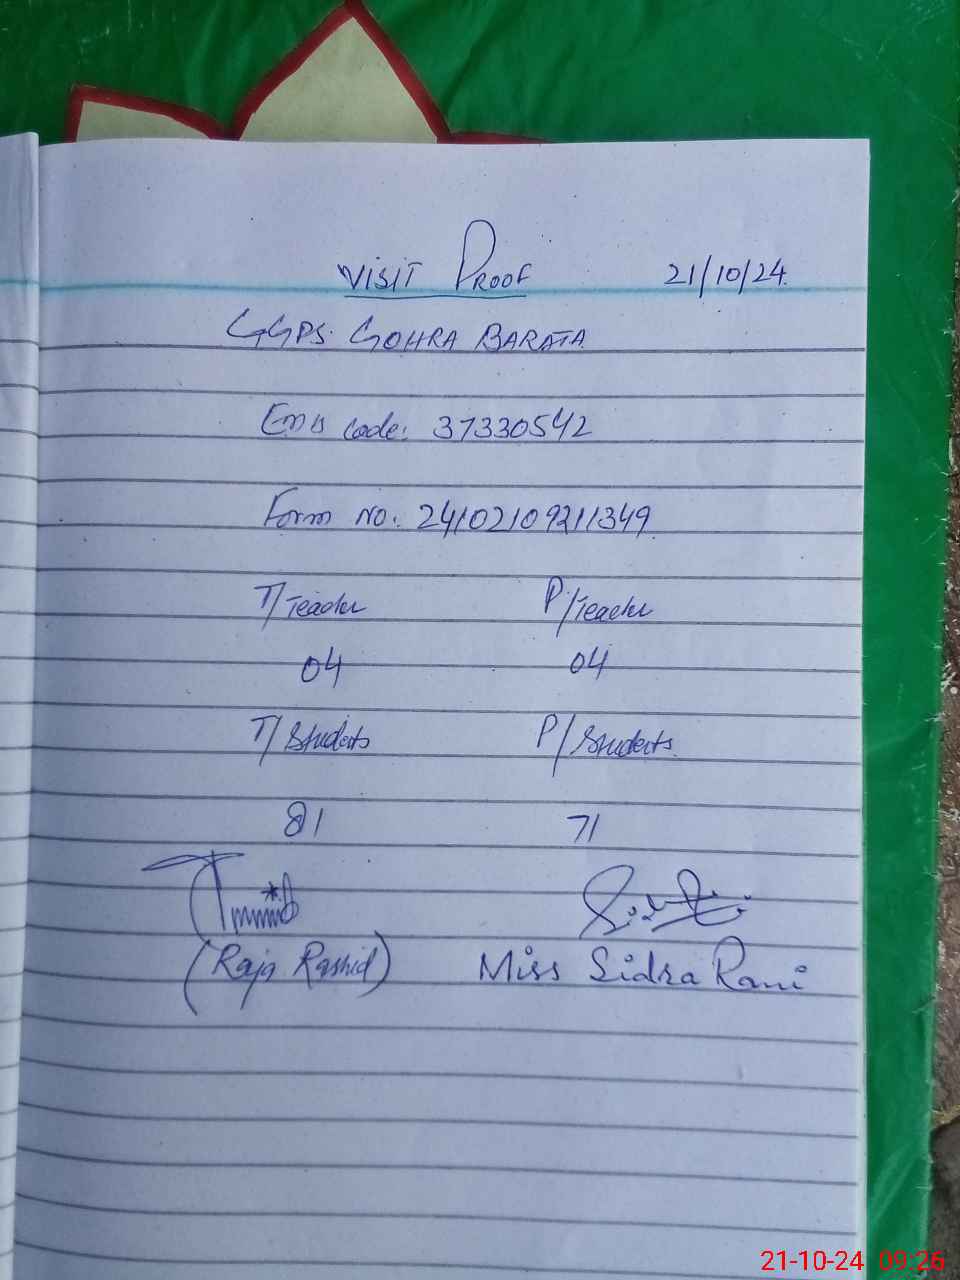 VISIT PROOF 21/10/24
GGPS GOHRA BARATA
Emis Code: 37330542
Form No: 24102109211349
T/Teacher P/Teacher
04 04
T/Students P/Students
81 71
(Raja Rashid) Miss Sidra Rani
21-10-24 09:26